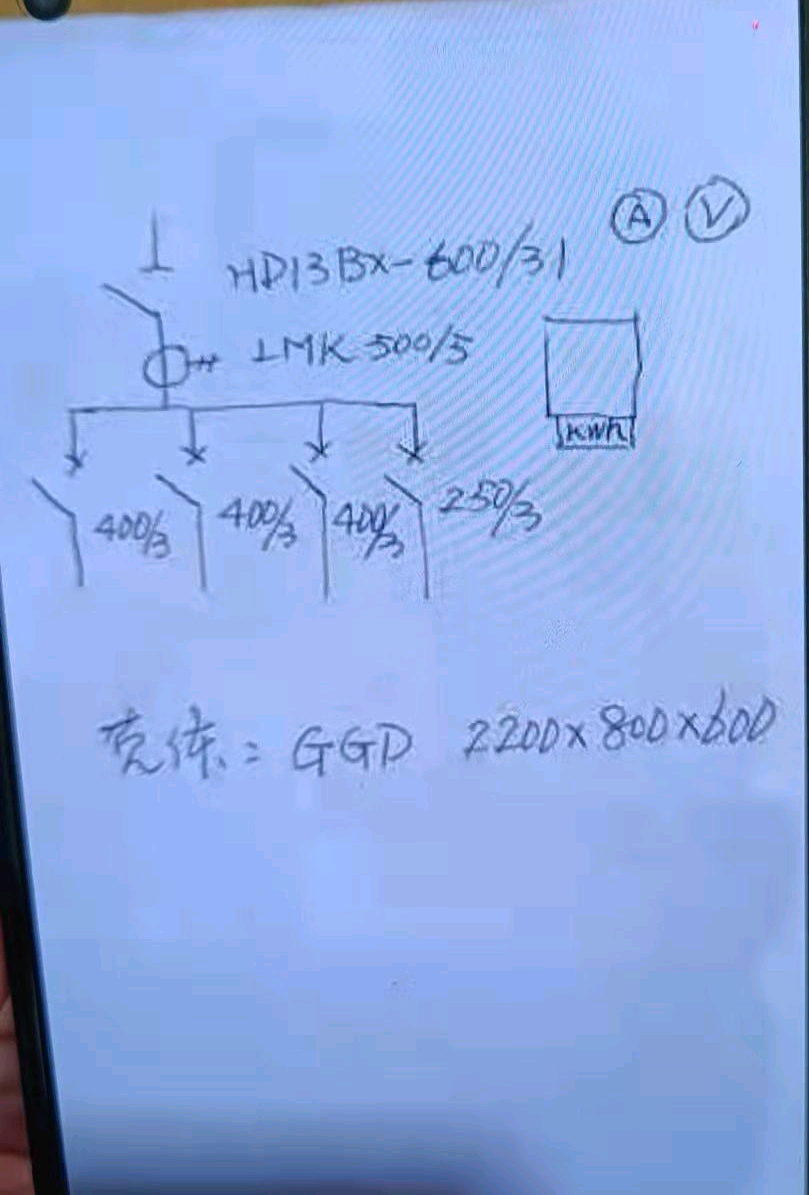 A V
HD13BX-600/31
LMK 500/5
KWh
400/3 400/3 400/3 250/3
壳体: GGD 2200x800x600